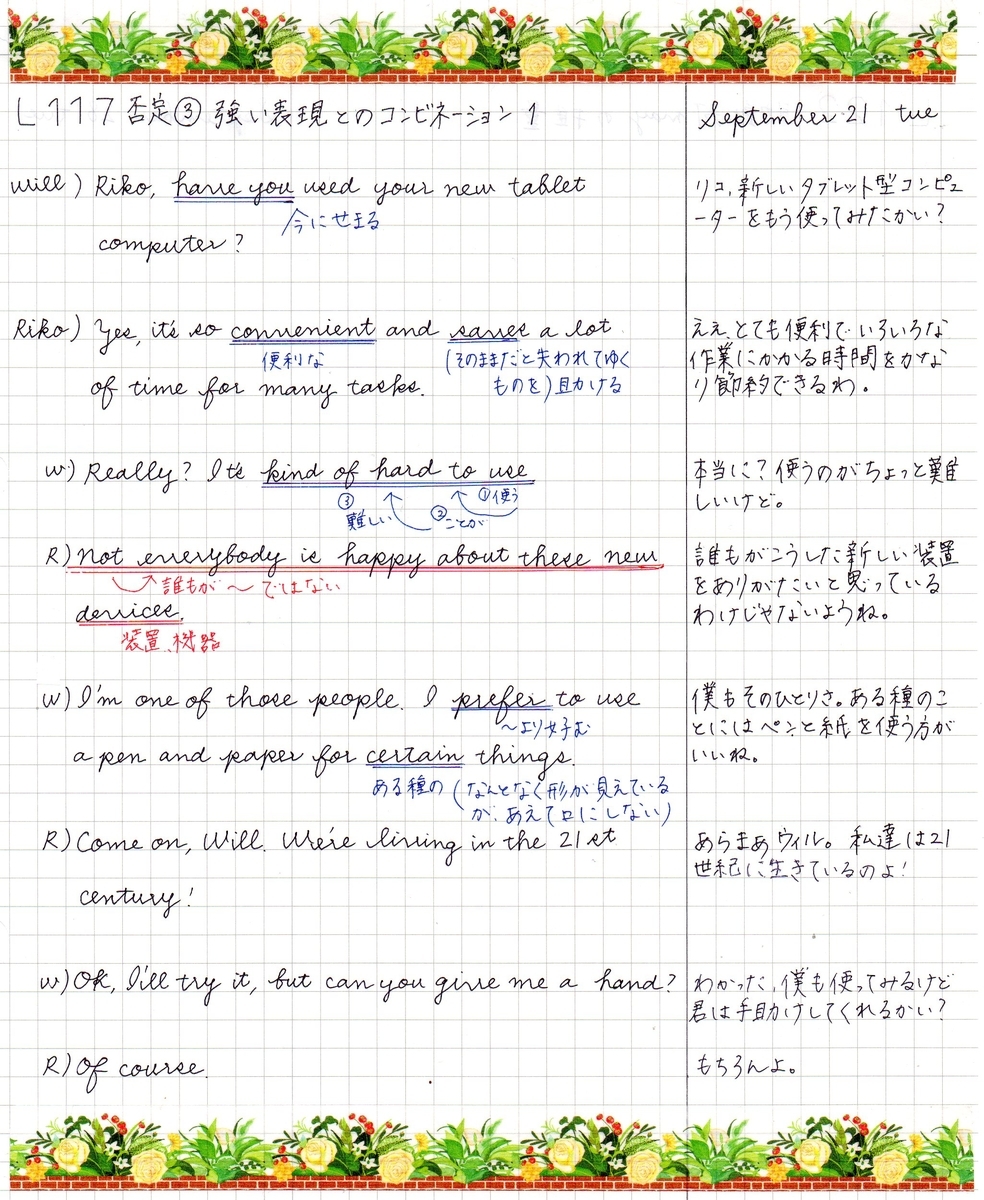 L117 否定③ 強い表現とのコンビネーション 1
September 21 tue
Will) Riko, have you used your new tablet
今にせまる
computer?
リコ、新しいタブレット型コンピュ
ーターをもう使ってみたかい?
Riko) Yes, it's so convenient and saves a lot
便利な
(そのままだと失われてゆく
ものを)助ける
of time for many tasks.
ええ、とても便利でいろいろな
作業にかかる時間をかな
り節約できるわ。
W) Really? It's kind of hard to use
①使う
②ことが
③
難しい
本当に?使うのがちょっと難
しいけど。
R) Not everybody is happy about these new
誰もが〜ではない
devices.
装置、機器
誰もがこうした新しい装置
をありがたいと思っている
わけじゃないようね。
W) I'm one of those people. I prefer to use
〜より好む
a pen and paper for certain things.
ある種の(なんとなく形が見えている
が、あえて口にしない)
僕もそのひとりさ。ある種のこ
とにはペンと紙を使う方が
いいね。
R) Come on, Will. We're living in the 21st
century!
あらまあウィル。私達は21
世紀に生きているのよ!
W) Ok, I'll try it, but can you give me a hand?
わかった、僕も使ってみるけど
君は手助けしてくれるかい?
R) Of course.
もちろんよ。